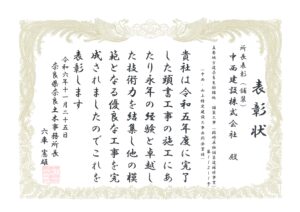 表彰状
所長表彰(舗装)
中西建設株式会社 殿
貴社は令和五年度に完了
した頭書工事の施工にあ
たり永年の経験と卓越し
た技術力を結集し他の模
範となる優良な工事を完
成されましたのでこれを
表彰します
令和六年十一月二十五日
奈良県奈良土木事務所長
六車憲雄